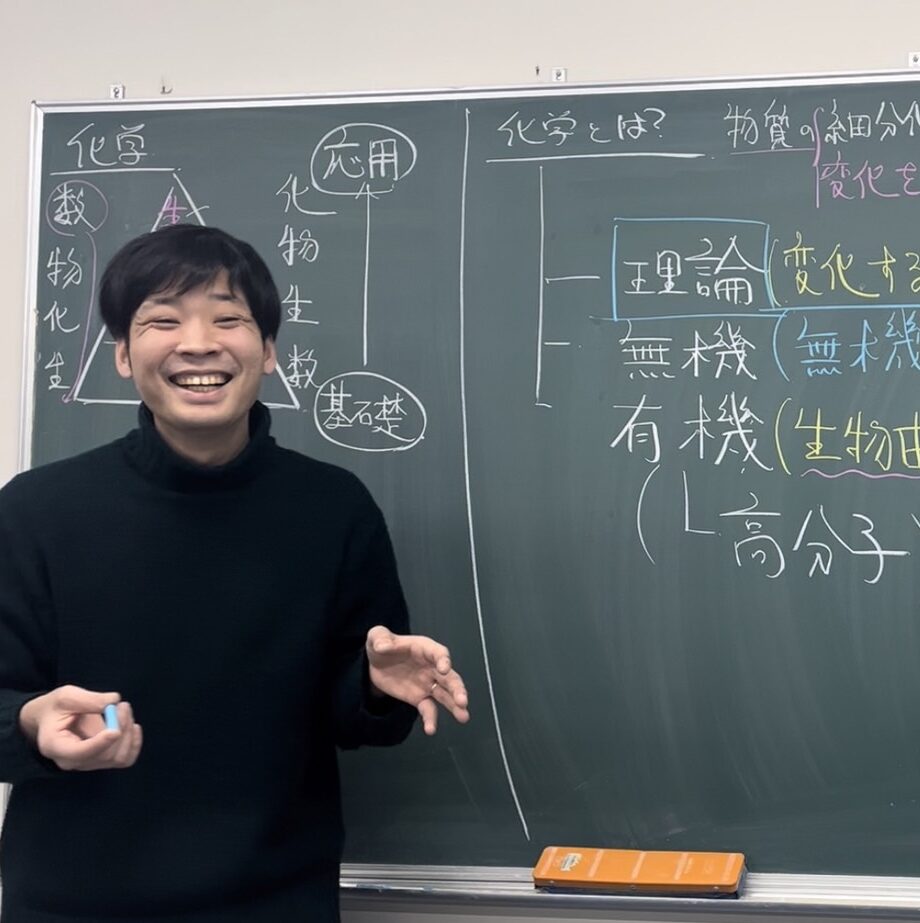 化学
数
物
化
生
生
化
物
生
数
応用
基礎
化学とは?
物質の細分化
変化を
理論(変化する
無機(無機
有機(生物由
(高分子)